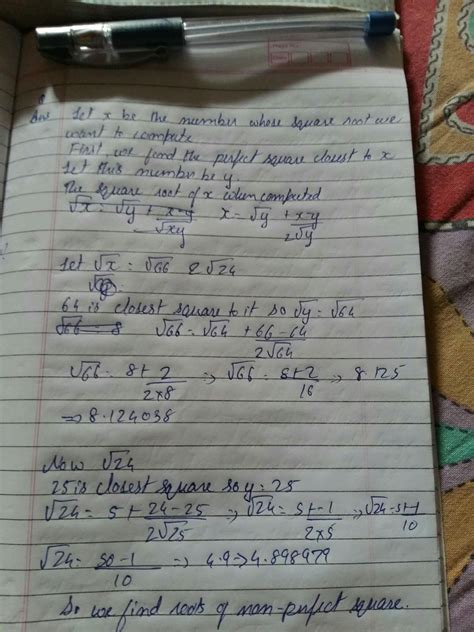 Ans Let x be the number whose square root we
want to compute
First we find the perfect square closest to x
Let this number be y.
The square root of x when computed
√x = √y + x-y/√xy x = √y + x-y/2√y
Let √x = √66 2√24
64 is closest square to it so √y = √64
√66 = 8 √66 = √64 + 66-64/2√64
√66 = 8+2/2×8 => √66 = 8+2/16 => 8.125
=> 8.124038
Now √24
25 is closest square so y = 25
√24 = 5 + 24-25/2√25 => √24 = 5+-1/2×5 => √24 = 5+-1/10
√24 = 50-1/10 => 4.9 => 4.898979
So we find roots of non-perfect square.